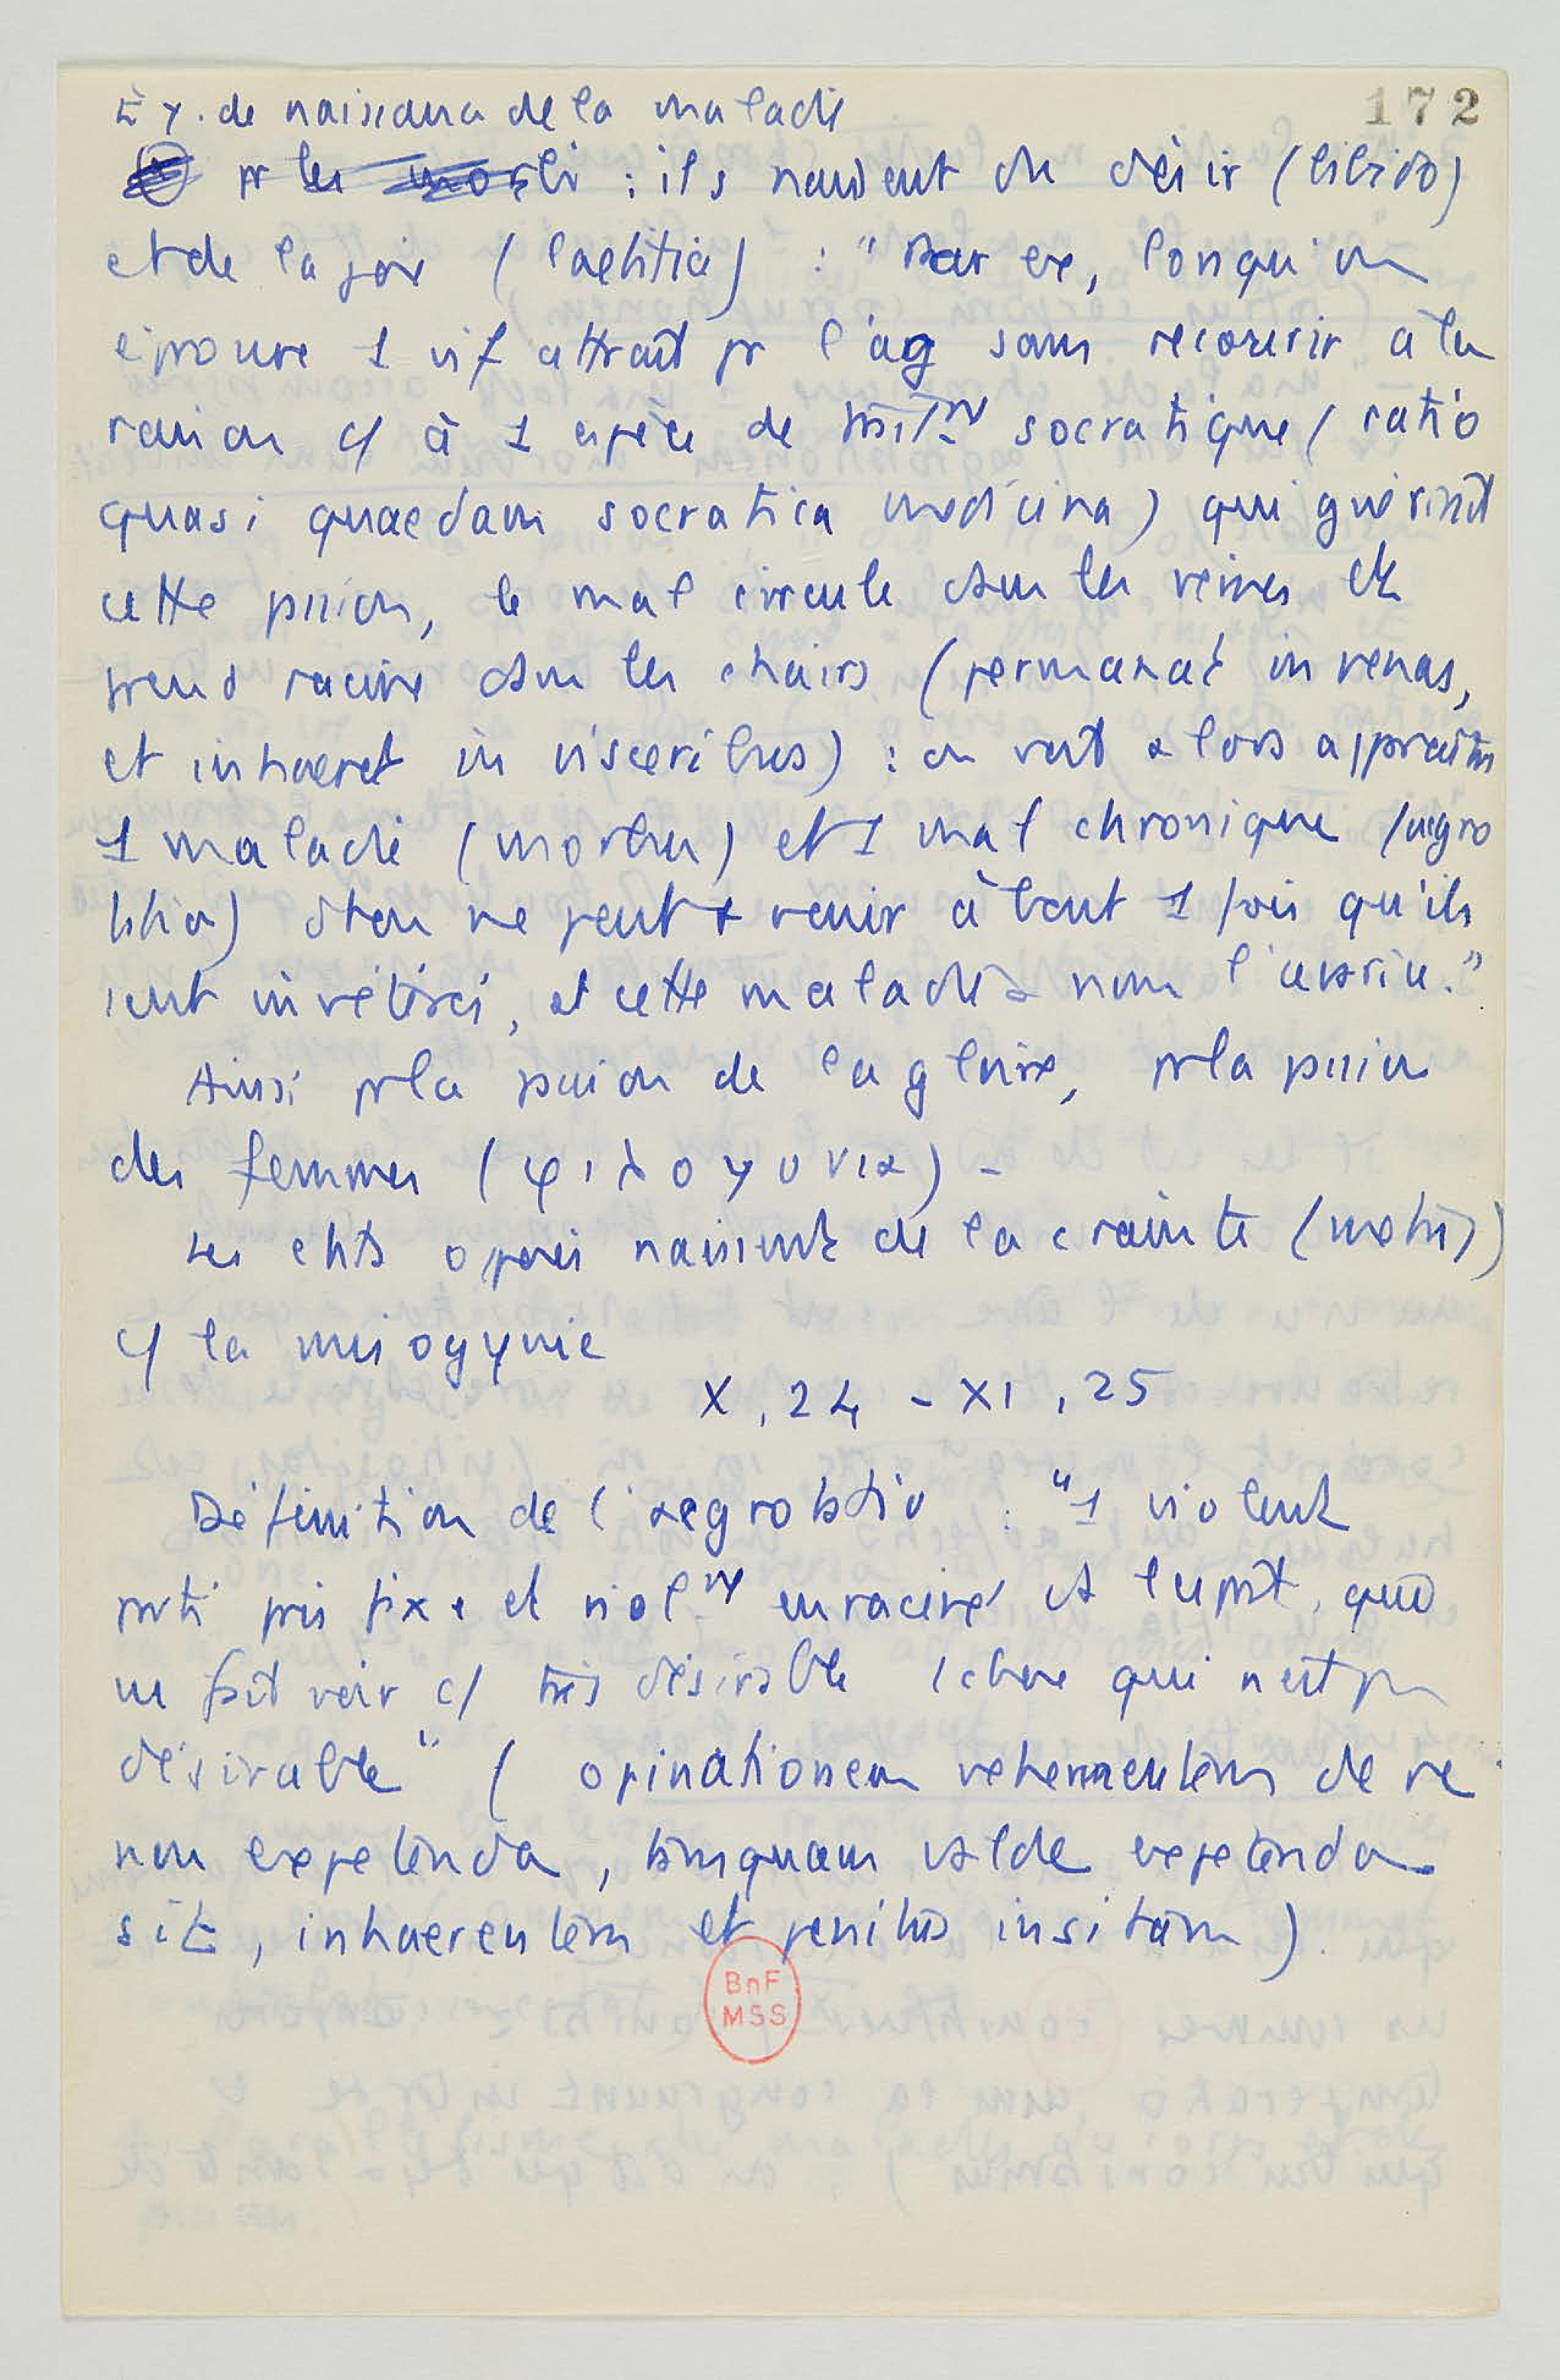 172
Ex. de naissance de la maladie
pr les morbi : ils naissent du désir (libido)
et de la joie (laetitia) : "Par ex, lorsqu'on
éprouve 1 vif attrait pr l'ag sans recourir à la
raison c/ à 1 espèce de trait^nt socratique (ratio
quasi quaedam socratica medicina) qui guérirait
cette passion, le mal circule dans les veines et
prend racine dans les chairs (permanat in venas,
et inhaeret in visceribus) : on voit alors apparaître
1 maladie (morbus) et 1 mal chronique (aegro
tatio) dont on ne peut + venir à bout 1 fois qu'ils
sont invétérés, et cette maladie a nom l'avarice."
Ainsi pr la passion de la gloire, pr la passion
des femmes (φιλογυνια) -
Les états opposés naissent de la crainte (metus)
c/ la misogynie
X, 24 - XI, 25
Définition de l'aegrotatio : "1 violent
parti pris fixe et viol^nt enraciné ds l'esprit, qui
ns fait voir c/ très désirable 1 chose qui n'est pas
désirable" (opinationem vehementem de re
non expetenda, tamquam valde expetenda
sit, inhaerentem et penitus insitam).
BnF
MSS